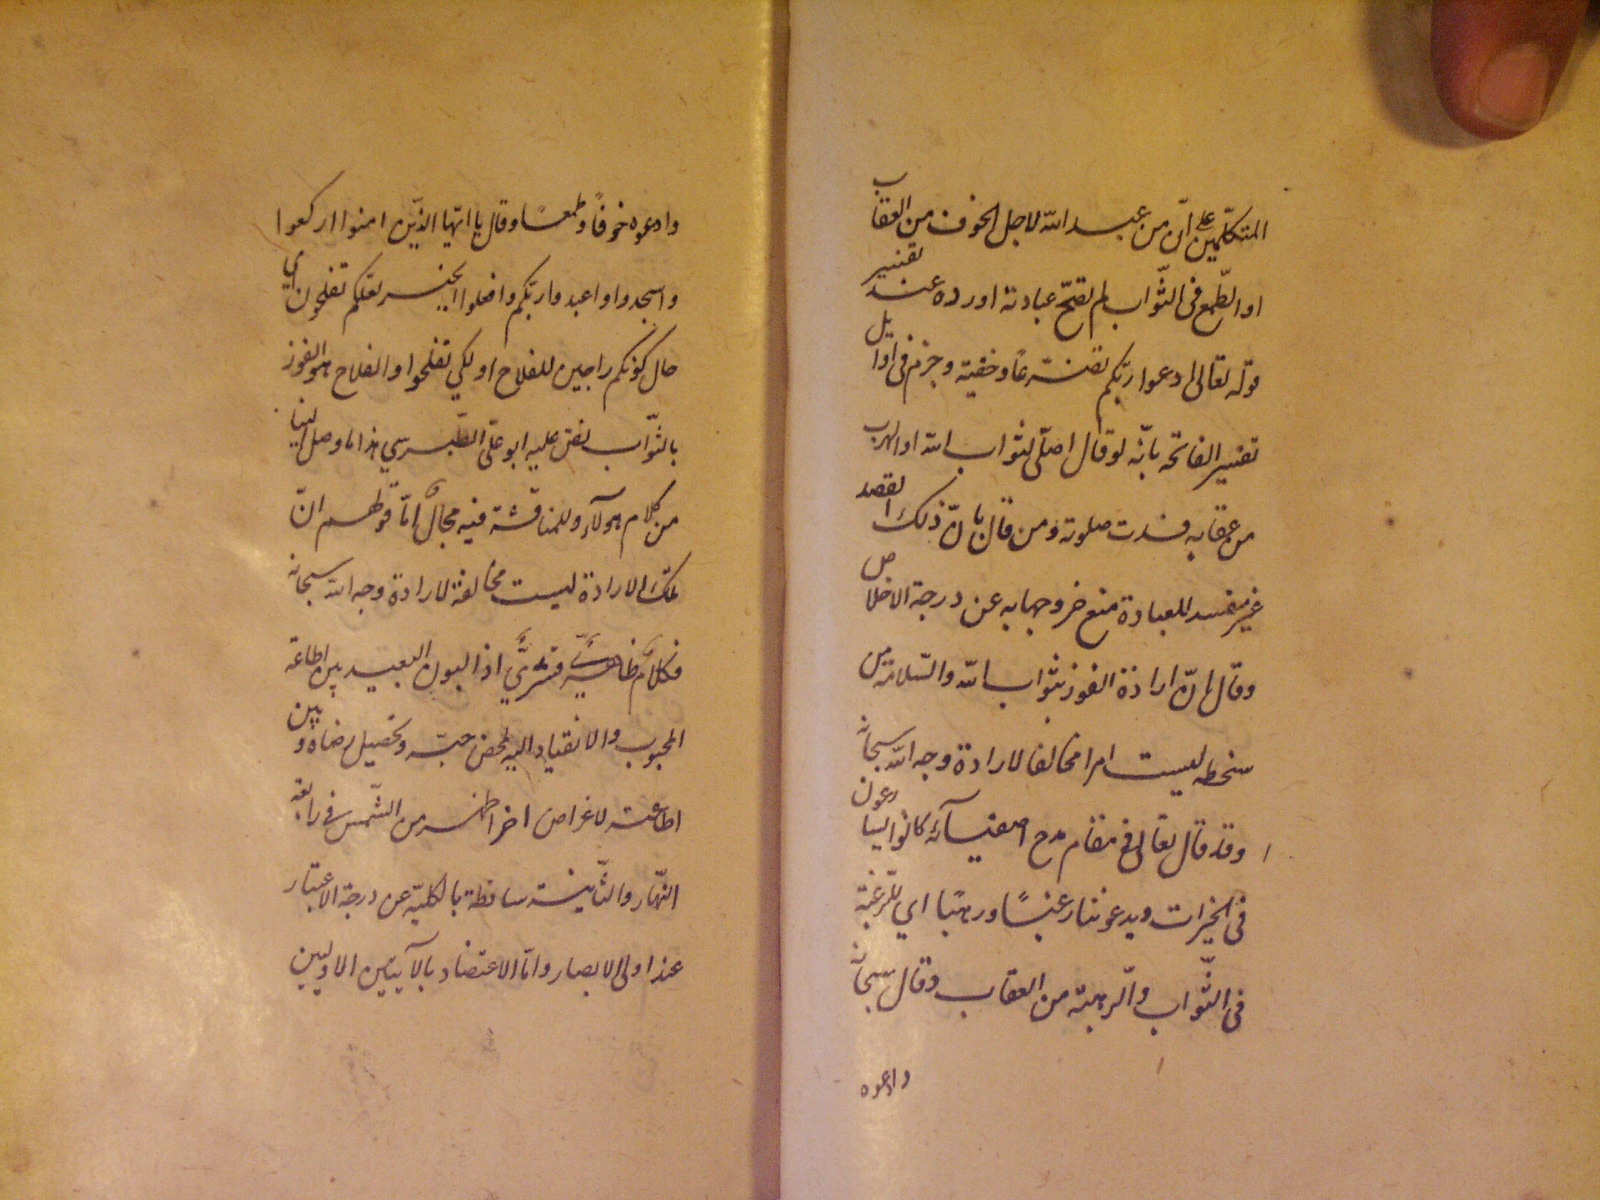 المتكلّمين على انّ من عبد الله لاجل الخوف من العقاب
او الطّمع فى الثّواب لم تصحّ عبادته اورده عند تفسير
قوله تعالى ادعوا ربّكم تضرّعًا وخفية وجزم فى اوايل
تفسير الفاتحة بانّه لو قال اصلّى لثواب الله او الهرب
من عقابه فسدت صلوته ومن قال بانّ ذلك القصد
غير مفسد للعبادة منع خروجها به عن درجة الاخلاص
وقال انّ ارادة الفوز بثواب الله والسّلامة من
سخطه ليست امرا مخالفا لارادة وجه الله سبحانه
وقد قال تعالى فى مقام مدح اصفيآئه كانوا يسارعون
فى الخيرات ويدعوننا رغبًا ورهبًا اى للرّغبة
فى الثّواب والرّهبة من العقاب وقال سبحانه
وادعوه
وادعوه خوفاً وطمعًا وقال يا ايّها الذّين امنوا اركعوا
واسجدوا واعبدوا ربّكم وافعلوا الخير لعلّكم تفلحون اي
حال كونكم راجين للفلاح او لكي تفلحوا والفلاح هو الفوز
بالثّواب نصّ عليه ابو علىّ الطّبرسي هذا ما وصل الينا
من كلام هولآء وللمناقشة فيه مجالٌ امّا قولهم انّ
تلك الارادة ليست مخالفة لارادة وجه الله سبحانه
فكلامٌ ظاهريٌّ قشريٌّ اذ البون البعيد بين اطاعة
المحبوب والانقياد اليه لمحض حبّه وتحصيل رضاه وبين
اطاعته لاغراض اخر اظهر من الشّمس في رابعة
النّهار والثّانية ساقطة بالكلّية عن درجة الاعتبار
عند اولى الابصار وامّا الاعتضاد بالآيتين الاوليين